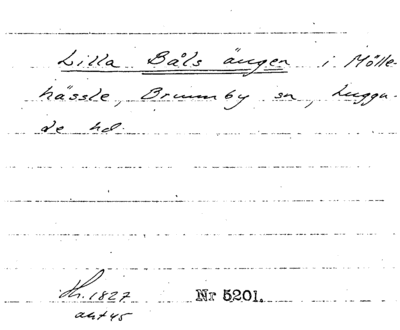 Lilla Båls ängen i Mölle-
hässle, Brunnby sn, Luggu-
de hd.
Nr 5201.
1827
akt 45